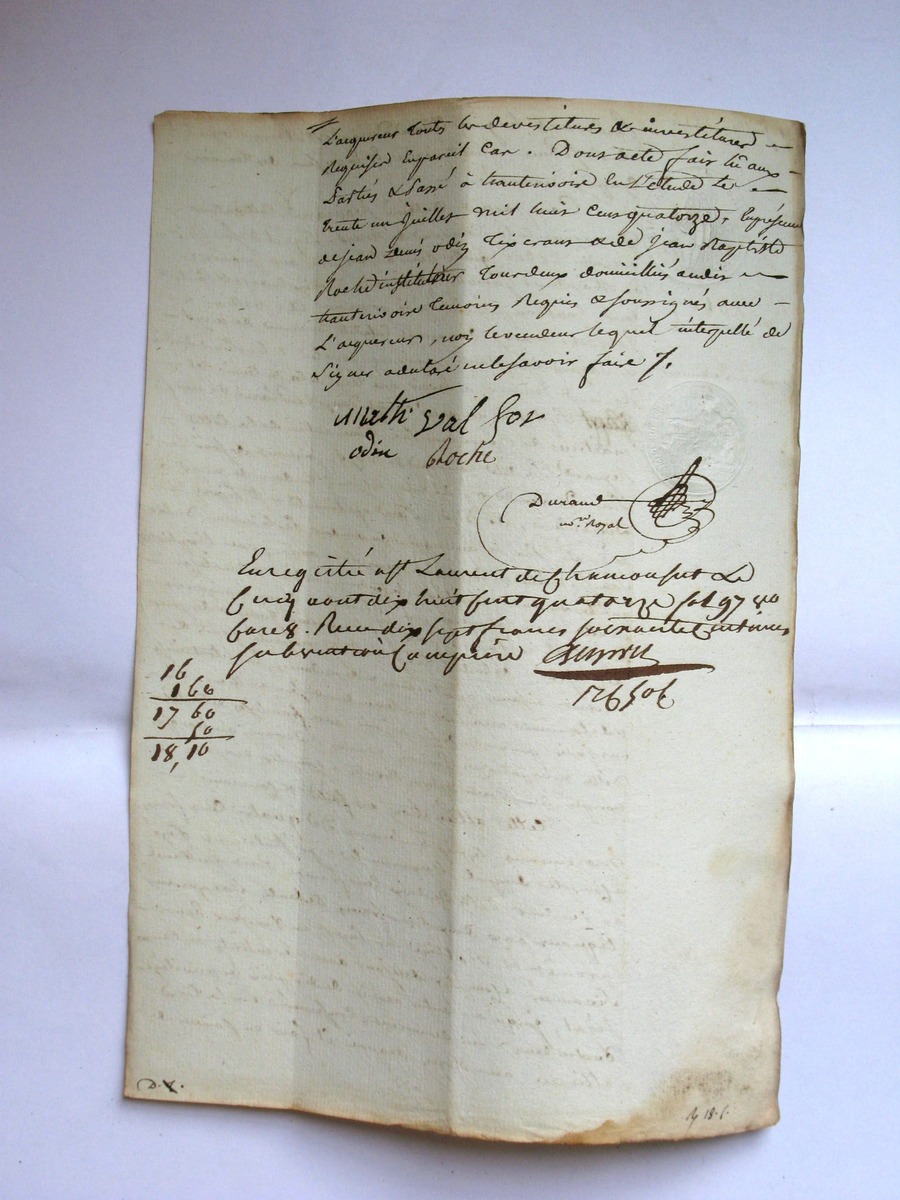 L'aquereur touts les devestitures & investitures
Requises En pareil Cas. Dont acte fait lû aux
Parties & Passé à hauterivoire En L'etude Le
trente un juillet mil huit Cens quatorze, En présence
de jean denis odin Tixerans & de jean Baptiste
Roche instituteur Tous deux domiciliés audit
hauterivoire temoins Requis & soussignés avec
L'aquereur, non le vendeur lequel interpellé de
signer a declaré ne le savoir faire /.
odin Roche
Durand
no.re Royal
Enregistré a St Laurent de Chamousset Le
Cinq aout dix huit Cent quatorze fol 97 Ro
Case 8. Recu dix sept francs soixante Centimes
subvention Comprise
16
1 60
17 60
50
18, 10